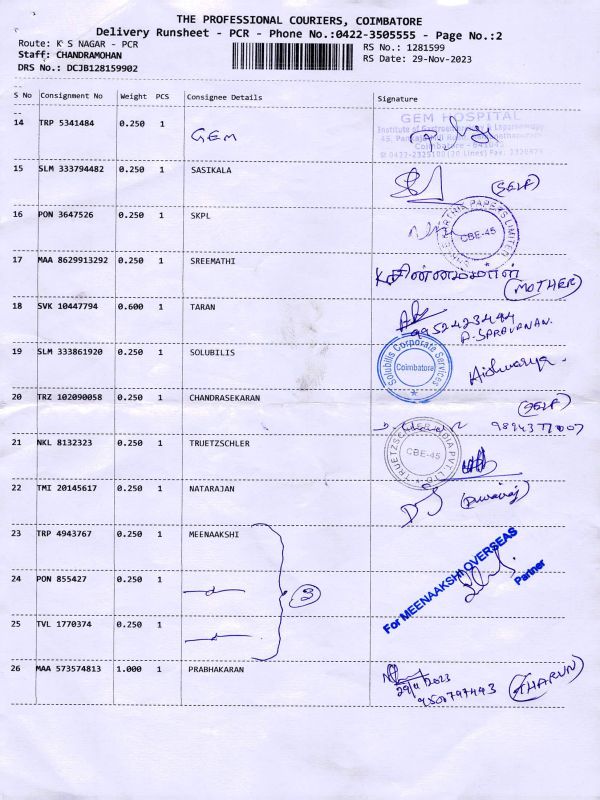 THE PROFESSIONAL COURIERS, COIMBATORE
Delivery Runsheet - PCR - Phone No.:0422-3505555 - Page No.:2
Route: K S NAGAR - PCR
RS No.: 1281599
Staff: CHANDRAMOHAN
RS Date: 29-Nov-2023
DRS No.: DCJB128159902
S No Consignment No Weight PCS Consignee Details Signature
14 TRP 5341484 0.250 1 GEM
GEM HOSPITAL
15 SLM 333794482 0.250 1 SASIKALA
(SELF)
16 PON 3647526 0.250 1 SKPL
CBE-45
17 MAA 8629913292 0.250 1 SREEMATHI
K.சின்னம்மாள்
(MOTHER)
18 SVK 10447794 0.600 1 TARAN
9952423494
19 SLM 333861920 0.250 1 SOLUBILIS
Solubilis Corporate Services
Coimbatore
Aishwarya.
20 TRZ 102090058 0.250 1 CHANDRASEKARAN
(SELF)
21 NKL 8132323 0.250 1 TRUETZSCHLER
CBE-45
22 TMI 20145617 0.250 1 NATARAJAN
23 TRP 4943767 0.250 1 MEENAAKSHI
For MEENAAKSHI OVERSEAS
Partner
24 PON 855427 0.250 1
3
25 TVL 1770374 0.250 1
26 MAA 573574813 1.000 1 PRABHAKARAN
29/11/2023
(THARUN)